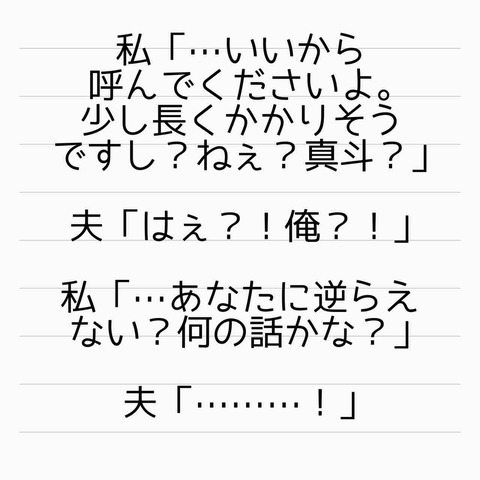 私「…いいから
呼んでくださいよ。
少し長くかかりそう
ですし？ねぇ？真斗？」
夫「はぇ？！俺？！」
私「…あなたに逆らえ
ない？何の話かな？」
夫「………！」